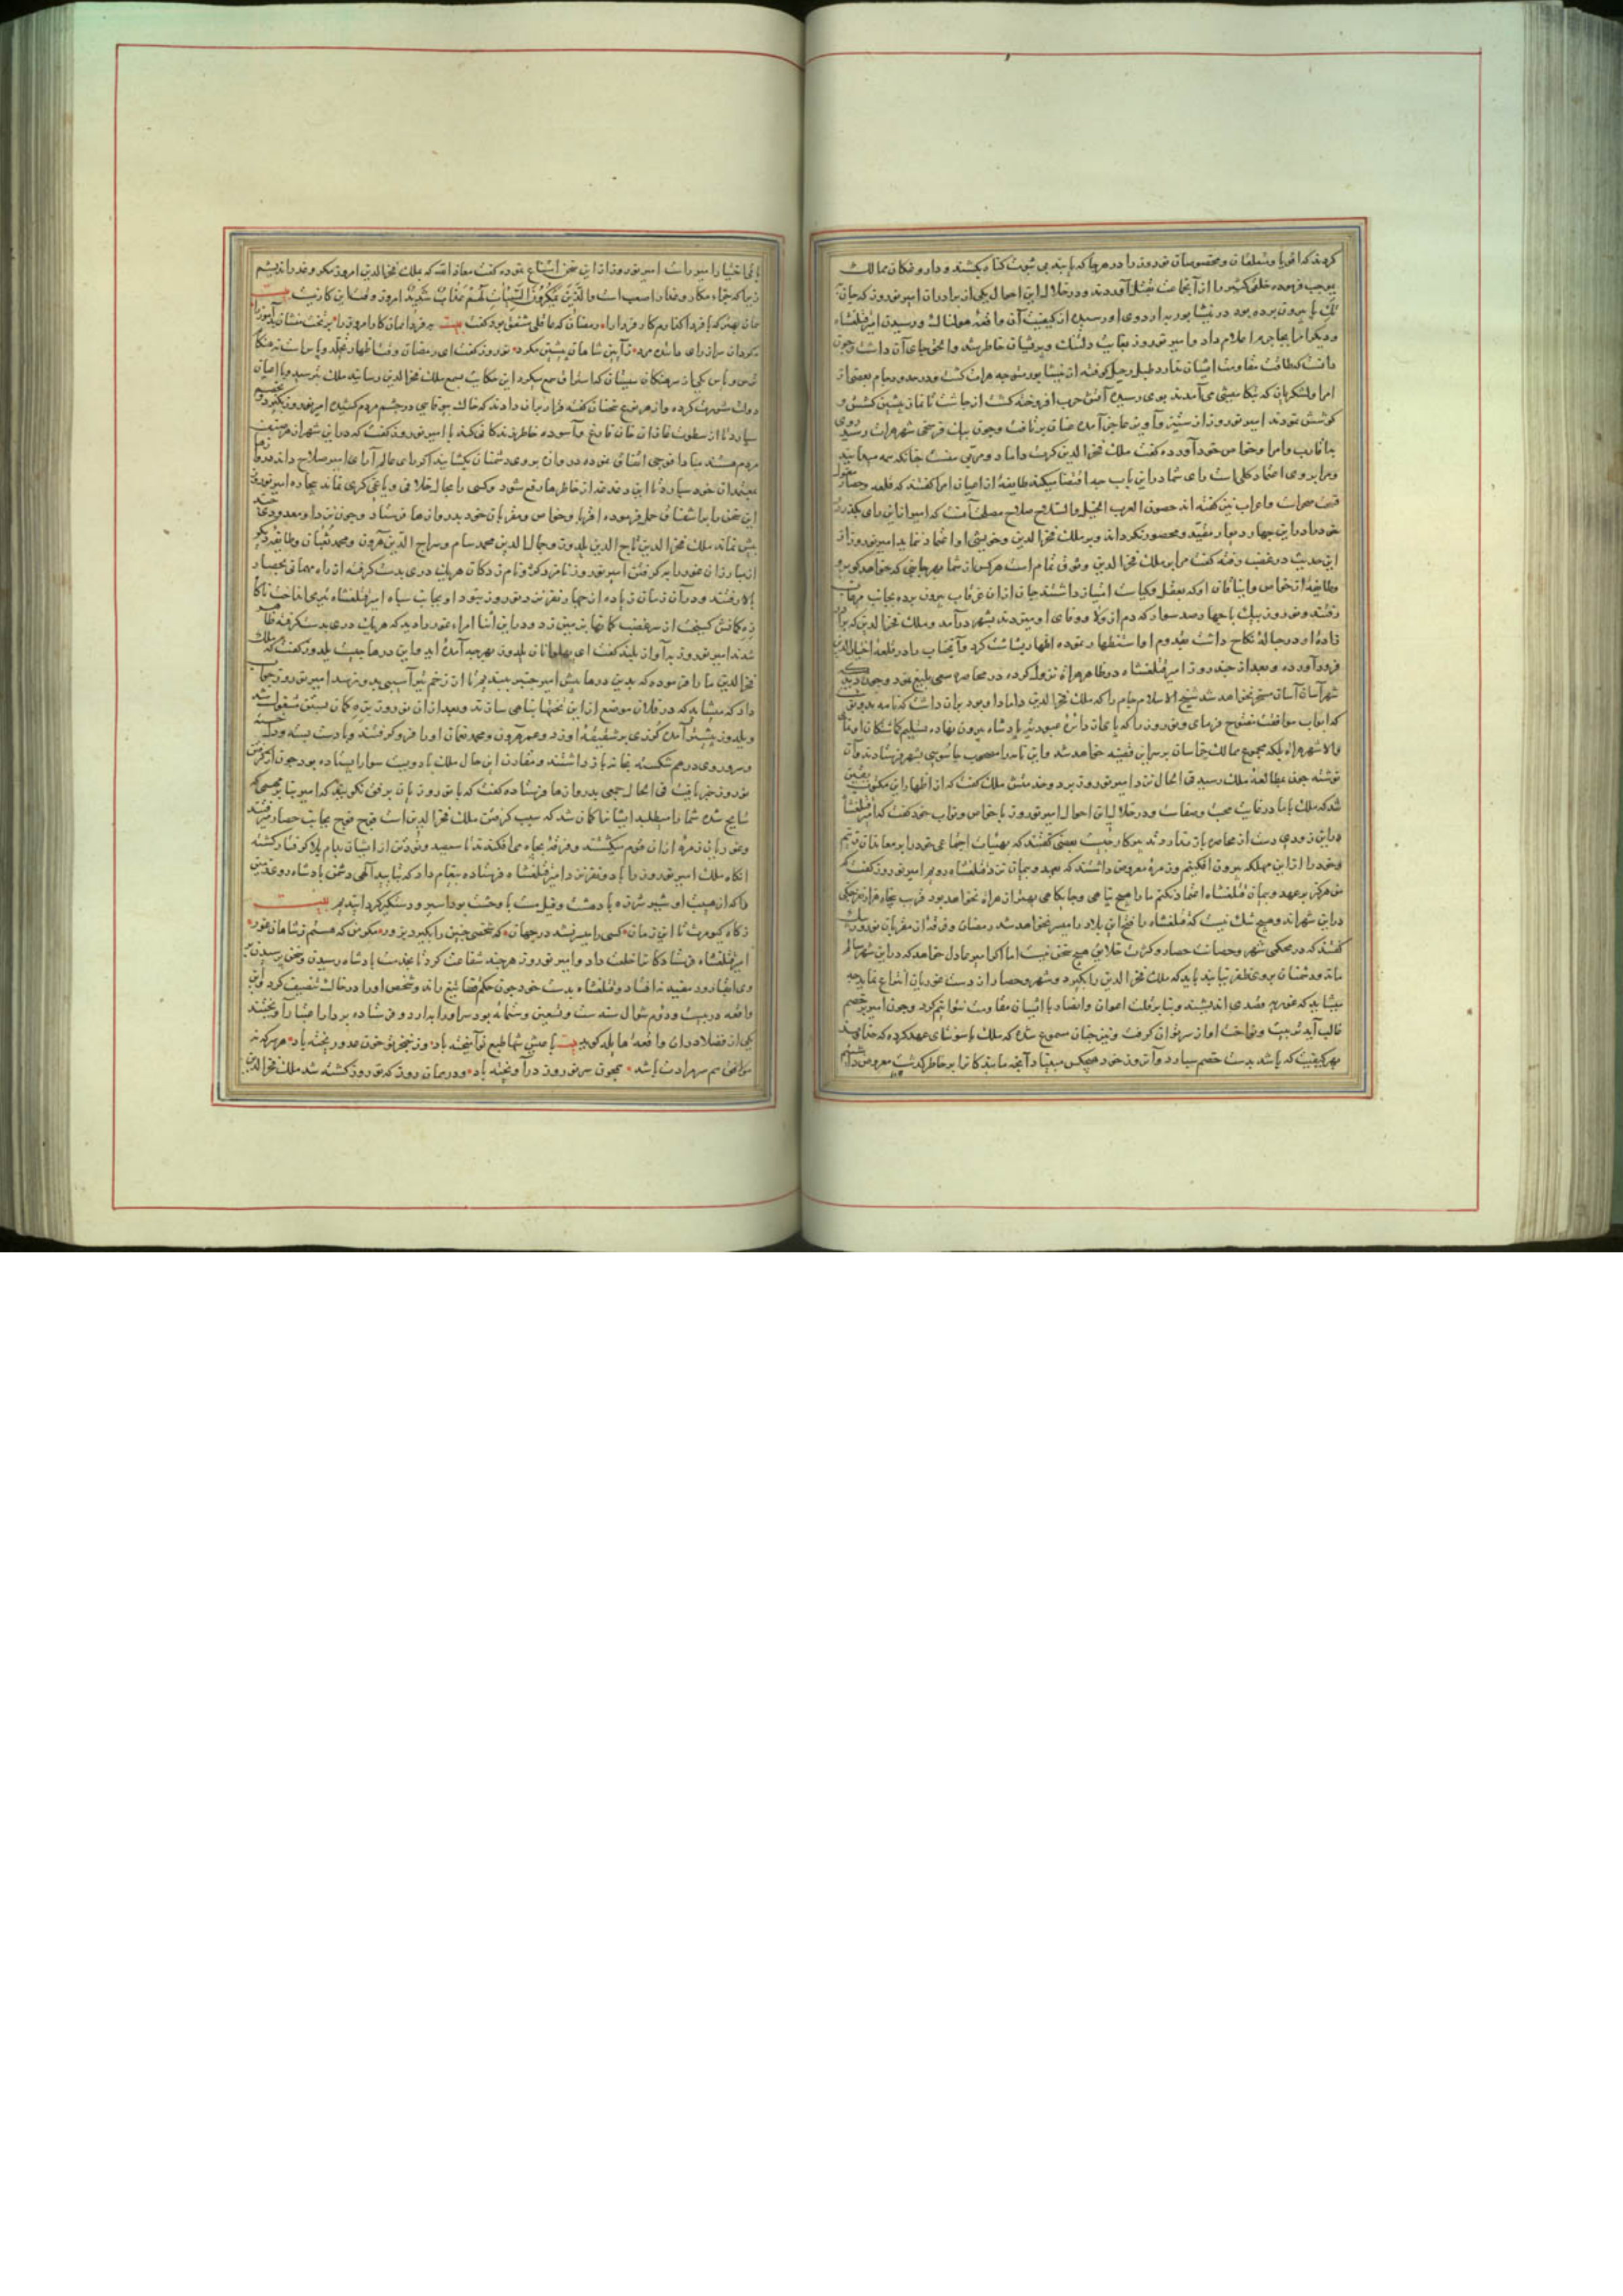 کردند که اقربا و متعلقان و مخصوصان نوروز را در هر جا که یابند بی ثبوت گناه بکشند و داروغگان ممالک
بموجب فرموده خلقی کثیر را از آنجماعت بقتل آوردند و در خلال این احوال یکی از برادران امیر نوروز که جان
بیرون برده بود در نیشابور به اردوی او رسیده از کیفیت آن واقعه هولناک و رسیدن امیر قتلغشاه
و دیگر امرا ماجرا اعلام داد و امیر نوروز بغایت دلتنگ و پریشان خاطر شد و الحق جای آن داشت و چون
دانست که طاقت مقاومت ایشان ندارد طبل رحیل کوفته از نیشابور متوجه هرات گشت و در حدود جام بعضی از
امرا و لشکریان که بتکامیشی می آمدند بوی رسیده آتش حرب افروخته گشت از چاشت تا نماز پیشین کشش و
کوشش نمودند امیر نوروز از ستیز و آویز عاجز آمده عنان برتافت و چون بیک فرسخی شهر هرات رسید روی
باقارب و امرا و خواص خود آورده گفت ملک فخر الدین کرت داماد و مربی منست
و مرا بر وی اعتماد کلی است رای شما در این باب چه اقتضا میکند طایفه از اعیان امرا گفتند که قلعه و حصار معقول
صحراست و اعراب نیز گفته اند حصون العرب الخیل و السلاح صلاح مصلحت آنست که امیر از این رای بگذرد
خود را در این چهار دیوار مقید و محصور نگرداند و بر ملک فخر الدین و خویشی او اعتماد ننماید امیر نوروز از
این حدیث در غضب رفته گفت مرا بر ملک فخر الدین وثوق تمام است هر کس از شما بهر جای که خواهد گو برو
و طایفه از خواص و اینافان او که بعقل و کیاست امتیاز داشتند جان از آن غرقاب بیرون برده بجانب
رفتند و نوروز بیک با چهار صد سوار که دم از ولا و وفای او میزدند بشهر درآمد و ملک فخر الدین که برادر
زاده او در حباله نکاح داشت مقدوم او استظهار نموده اظهار بشاشت کرد و آنجناب را در قلعه اختیار الدین
فرود آورده و بعد از چند روز امیر قتلغشاه در ظاهر هراة نزول کرده در محاصره سعی بلیغ نمود و چون دید که
شهر آسان آسان مسخر نخواهد شد شیخ الاسلام جام را که ملک فخر الدین داماد او بود بران داشت که نامه بدو نوشت
که ابواب موافقت مفتوح فرمای و نوروز را که پای از دائره عبودیت پادشاه بیرون نهاده تسلیم گماشتگان او نمای
والا شهر هراة بلکه مجموع ممالک خراسان بر سر این فتنه خواهد شد و این نامه را مصحوب جاسوسی بشهر فرستادند و آن
نوشته چون بمطالعه ملک رسید فی الحال نزد امیر نوروز برد و خدمتش ملک گفت که از اظهار این مکتوب یقین
شد که ملک با ما در غایت محبت و صفاست و در خلال این احوال امیر نوروز با خواص و نواب خود گفت که امیر قتلغشاه
در این زودی دست از محاصره باز ندارد تدبیر کار چیست بعضی گفتند که بهیأت اجتماعی خود را بر معاندان زنیم
و خود را از این مهلکه بیرون افکنیم و زمره معروض داشتند که بعهد و پیمان نزد قتلغشاه رویم امیر نوروز گفت که
من هرگز بر عهد و پیمان قتلغشاه اعتماد نکنم ما را هیچ پناهی و جایگاهی بهتر از هراة نخواهد بود قرب پنجاه هزار مرد جنگی
در این شهراند و هیچ شک نیست که قتلغشاه را فتح این بلاد را میسر نخواهد شد رمضان و فرقه از مقربان نوروز بیک
گفتند که در محکمی شهر و حصانت حصار و کثرت خلایق هیچ سخن نیست اما اگر امیر عادل خواهد که در این شهر سالم
ماند و دشمنان بر وی ظفر نیابند باید که ملک فخر الدین را بگیرد و شهر و حصار از دست غوریان انتزاع نماید چه
میشاید که غوریه غدری اندیشند و بنا بر قلت اعوان و انصار با ایشان مقاومت نتوانیم کرد و چون امیر بر خصم
غالب آید تربیت و نواخت او از سر توان گرفت و نیز چنان مسموع شده که ملک با سونتای عهد کرده که خدای
بهر کیفیت که باشد بدست خصم سپارد و آنروز خود هیچکس مبتلا دا
یا فی اختیار امیر راست امیر نوروز از این سخن امتناع نموده گفت معاذ الله که ملک فخر الدین امروز مکر و غدر اندیشم
زیرا که جزاء مکار و غدار صعب است والذین یمکرون السیئات لهم عذاب شدید امروز وقت این کار نیست بیت
همان بهتر که با فردا گذاریم کار فردا را رمضان که عاقلی مشفق بود گفت بیت به فردا ممان کار امروز را بر تخت منشان بدآموز را
نوروز گفت ای رمضان وقت اظهار تجلد و پاس است نه هنگام
ترس و یاس یکی از سرهنگان سیستان که استراق سمع میکرد این حکایت بسمع ملک فخر الدین رسانید ملک بترسید و با اعیان
دولت مشورت کرده و از هر نوع سخنان گفته قرار بدان دادند که خاک بیوفایی در چشم مردم کشیده امیر نوروز بگیرد و بخصم
سپارد تا از سطوت غازان خان فارغ و آسوده خاطر زندگانی کند با امیر نوروز گفت که در این شهر از هر صنف
مردم هستند مبادا فوجی اتفاق نموده دروازه بروی دشمنان بگشایند اگر رای عالم آرای امیر صلاح داند دروازها
بمعتمدان خود سپارد تا این دغدغه از خاطرها رفع شود و کسی را مجال خلافی و یاغی گری نماند بیچاره امیر نوروز
این سخن را بر اشفاق حمل فرموده اقربا و خواص و مقربان خود بدروازها فرستاد و چون نزد او معدودی چند
بیش نماند ملک فخر الدین تاج الدین یلدوز و جمال الدین محمد سام و سراج الدین هرون و محمد نعمان و طایفه دیگر
از مبارزان غور را به گرفتن امیر نوروز نامزد کرد
بالا رفتند و در آن زمان زیاده از چهار نفر نزد نوروز نبود او بجانب سپاه امیر قتلغشاه تیری انداخت ناگاه
زه کمانش گسیخت از سر غضب کمان بر زمین زد و در این اثنا امراء غور را دید که هر یک دری بدست گرفته ظاهر
شدند امیر نوروز به آواز بلند گفت ای پهلوانان یلدوز بهر چه آمده اید و این درها چیست یلدوز گفت که ملک
فخر الدین ما را فرموده که بدین درها پیش امیر چنبر ببندیم تا از زخم تیر آسیبی بدو نرسد امیر نوروز جواب
داد که میشاید که در فلان موضع از این تختها پناهی سازند و بعد از آن نوروز بزه کمان بستن مشغول شد
و یلدوز پیشتر آمده گرزی بر شقیقه او زد و عمر هرون و محمد نعمان او را فرو گرفتند و یا دست بسته و دل خسته
و سر و روی درهم شکسته بخانه باز داشتند و مقارن این حال ملک با دویست سوار ایستاده بود چون از گرفتن
نوروز خبر یافت فی الحال جمعی بدروازها فرستاده گفت که با نوروزیان برفق بگویند که امیر
سانح شده شما را میطلبد ایشانرا گمان شد که سبب گرفتن ملک فخر الدین است فوج فوج بجانب حصار میرفتند
و غوریان زمرهٔ از آن قوم میکشتند و فرقه بچاه می افکندند تا سیصد و نود تن از ایشان بدام بلا گرفتار گشته
آنگاه ملک امیر نوروز را با دو نفر نزد امیر قتلغشاه فرستاده پیغام داد که بتأیید الهی دشمن پادشاه روی زمین
را که از هیبت او شیر شرزه با دهشت و فیل مست با وحشت بود اسیر و دستگیر گردانیدیم بیت
ز گاه کیومرث تا این زمان کسی را میسر نشد در جهان که شخصی چنین را بگیرد بزور مگر من که هستم ز شاهان غور
امیر قتلغشاه فرستادگانرا خلعت داد و امیر نوروز هر چند شفاعت کرد تا بخدمت پادشاه رسیدن و سخن پرسیدن بر
وی ابقا رود مفید نه افتاد و قتلغشاه بدست خود چون حکم قضا تیغ راند و شخص او را در خاک تنصیف کرد و این
واقعه در بیست و دوم شوال سنه ست و تسعین و ستمائه بود سر او را بدار و فرستاده بر دار اعتبار آویختند
یکی از فضلا در آن واقعه هایله گوید بیت
همچون سر نوروز درآویخته باد و در همان روز که نوروز کشته شد ملک فخر الدین